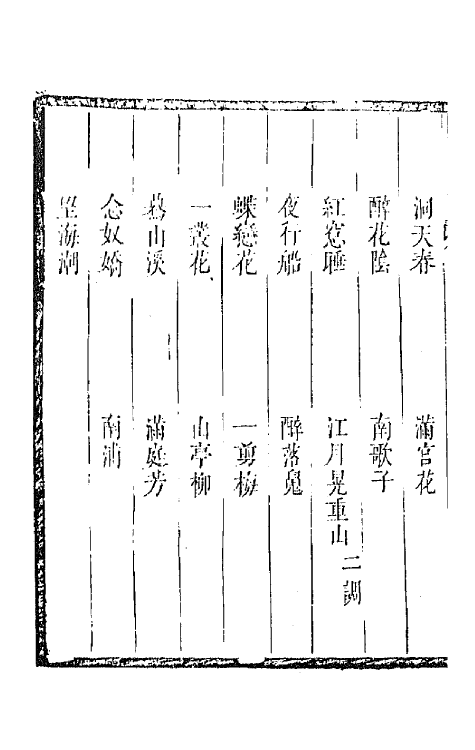 洞天春 滿宮花
醉花陰 南歌子
紅窓睡 江月晃重山 二調
夜行船 醉落魄
蝶戀花 一剪梅
一叢花 山亭柳
驀山溪 滿庭芳
念奴嬌 南浦
望海潮